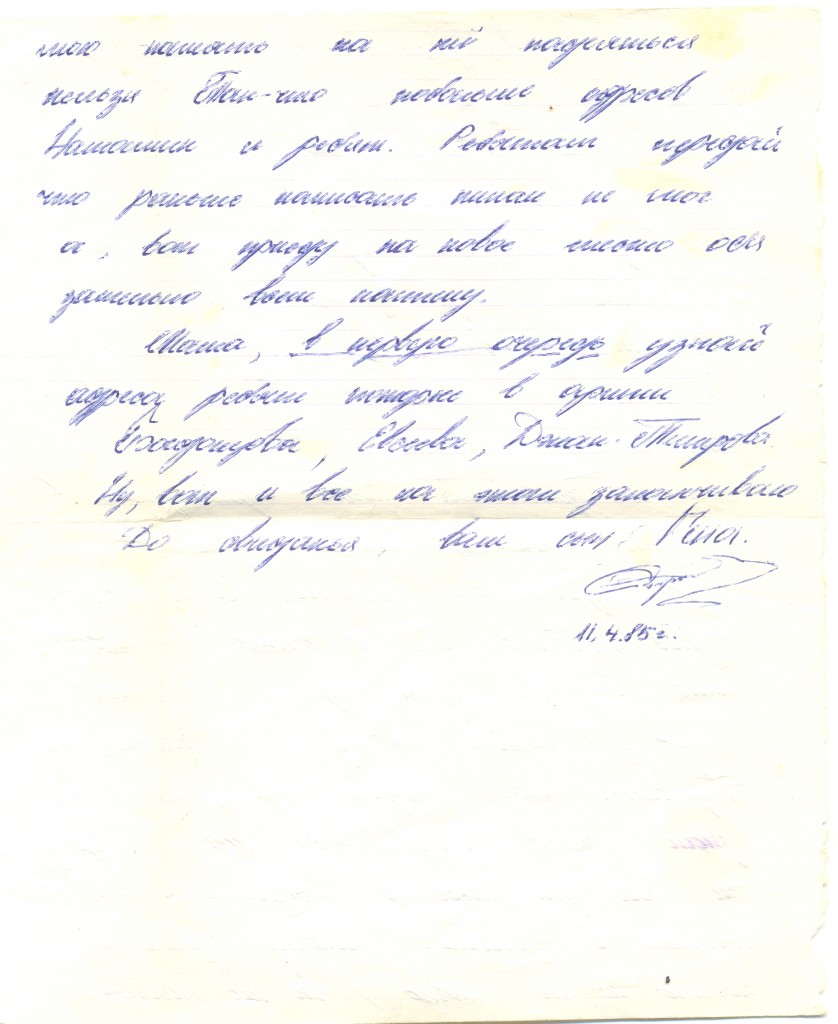 мою память на неё надеяться
нельзя Так-что побольше адресов
Наташин и ребят. Ребятам передай
что раньше написать никак не мог
а, вот приеду на новое место обя
зательно всем напишу.
Мама, в первую очередь узнай
адреса ребят которые в армии
Евсеева, Джан-Темирова
Ну, вот и все на этом заканчиваю
До свиданья, ваш сын: Гена.
11.4.85г.